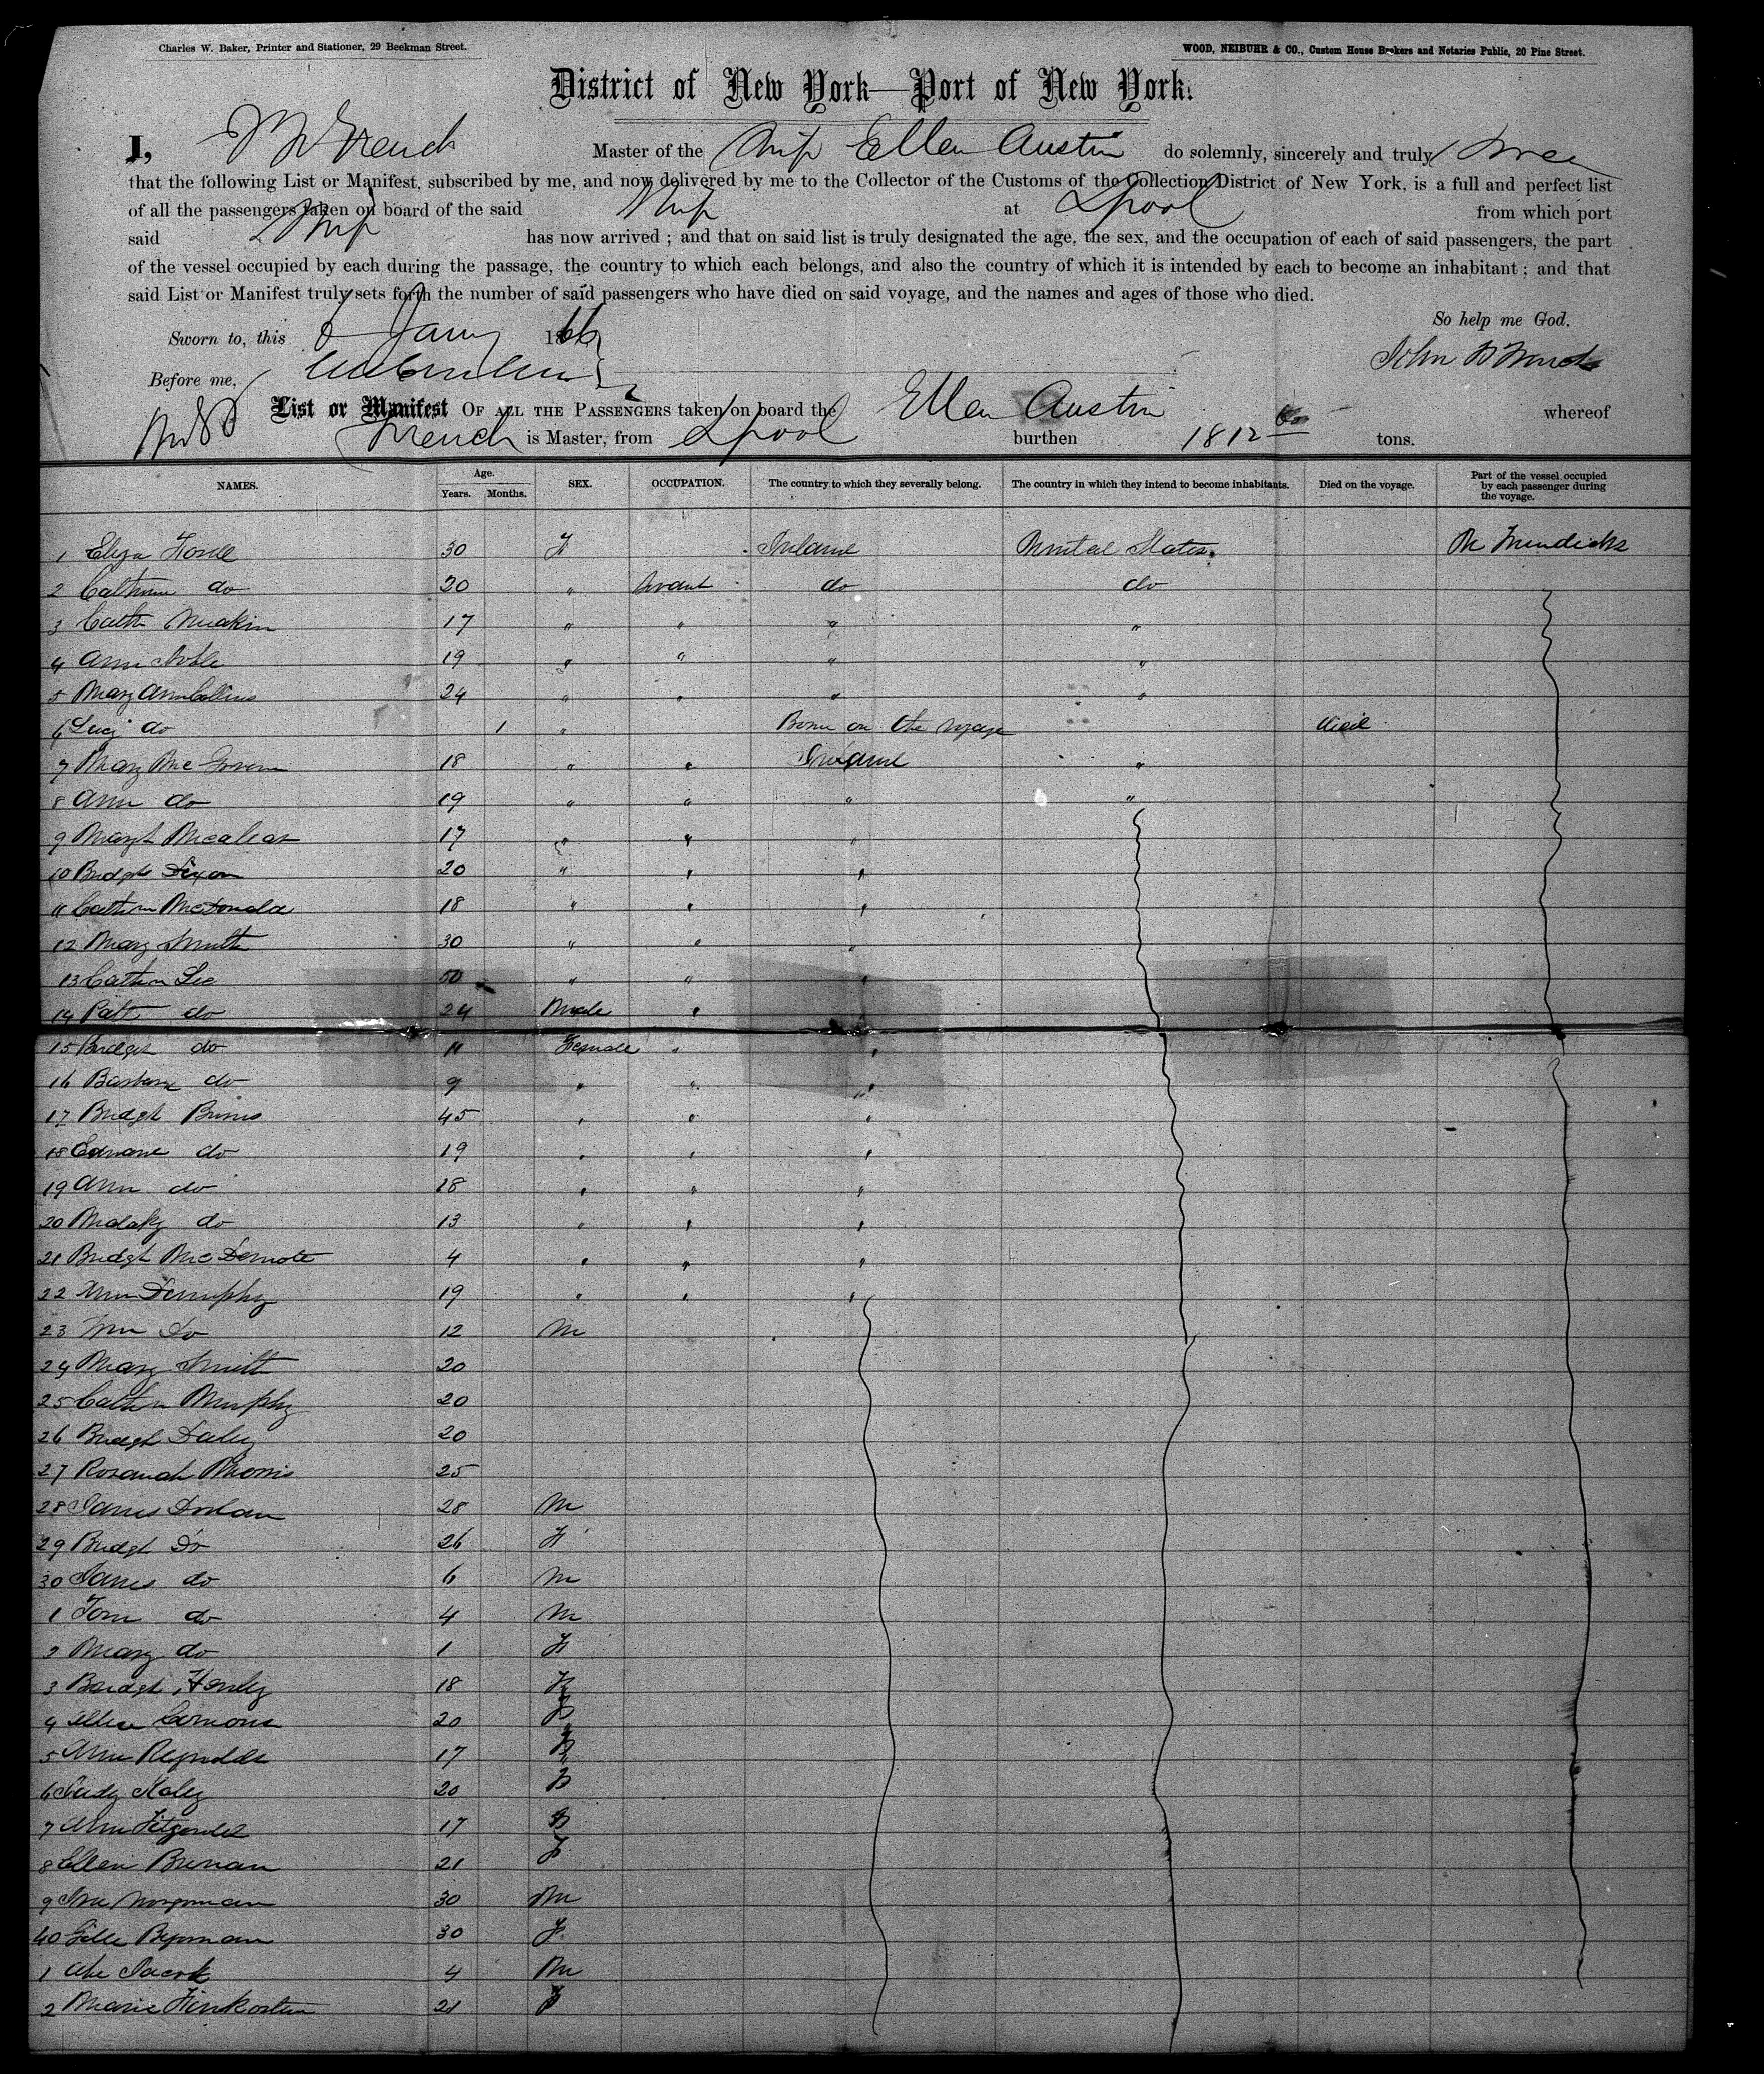 Charles W. Baker, Printer and Stationer, 29 Beekman Street.
WOOD, NEIBUHR & CO., Custom House Brokers and Notaries Public, 20 Pine Street.
District of New York—Port of New York.
I, French Master of the Ship Ellen Austin do solemnly, sincerely and truly
that the following List or Manifest, subscribed by me, and now delivered by me to the Collector of the Customs of the Collection District of New York, is a full and perfect list
of all the passengers taken on board of the said Ship at Lpool from which port
said Ship has now arrived ; and that on said list is truly designated the age, the sex, and the occupation of each of said passengers, the part
of the vessel occupied by each during the passage, the country to which each belongs, and also the country of which it is intended by each to become an inhabitant ; and that
said List or Manifest truly sets forth the number of said passengers who have died on said voyage, and the names and ages of those who died.
So help me God.
Sworn to, this 6 Jany 1866
John
Before me,
List or Manifest OF ALL THE PASSENGERS taken on board the Ellen Austin whereof
French is Master, from Lpool burthen 1812 tons.
NAMES. Age. Years. Months. SEX. OCCUPATION. The country to which they severally belong. The country in which they intend to become inhabitants. Died on the voyage. Part of the vessel occupied by each passenger during the voyage.
1 Eliza 30 F Ireland United States
2 Cathrine do 20 " do do
3 Cath Meakin 17 " " " "
4 Ann Noble 19 " " " "
5 Mary Ann Collins 24 " " " "
6 Lucy do 1 " Born on the voyage died
7 Mary Mc Govern 18 " " Ireland "
8 Ann do 19 " " " "
9 Margt 17 " " "
10 Bridgt Dixon 20 " " "
11 Cathrn McDonald 18 " " "
12 Mary Smith 30 " " "
13 Cathrn Lee 50 " " "
14 Patt do 24 Male "
15 Bridget do 11 Female " "
16 Barbara do 9 " " "
17 Bridgt Burns 45 " " "
18 do 19 " " "
19 Ann do 18 " " "
20 do 13 " " "
21 Bridgt Mc Dermott 4 " " "
22 Ann 19 " " "
23 Wm Do 12 M
24 Mary Smith 20
25 Cathrn Murphy 20
26 Bridgt Daley 20
27 Rosanah Morris 25
28 James 28 M
29 Bridgt Do 26 F
30 James do 6 M
1 Tom do 4 M
2 Mary do 1 F
3 Bridgt Henly 18 F
4 Ellen 20 F
5 Ann Reynolds 17 F
6 Judy 20 F
7 Ann Fitzgerald 17 F
8 Ellen Brenan 21 F
9 30 M
40 30 F
1 Abe Jacob 4 M
2 Marie 21 F